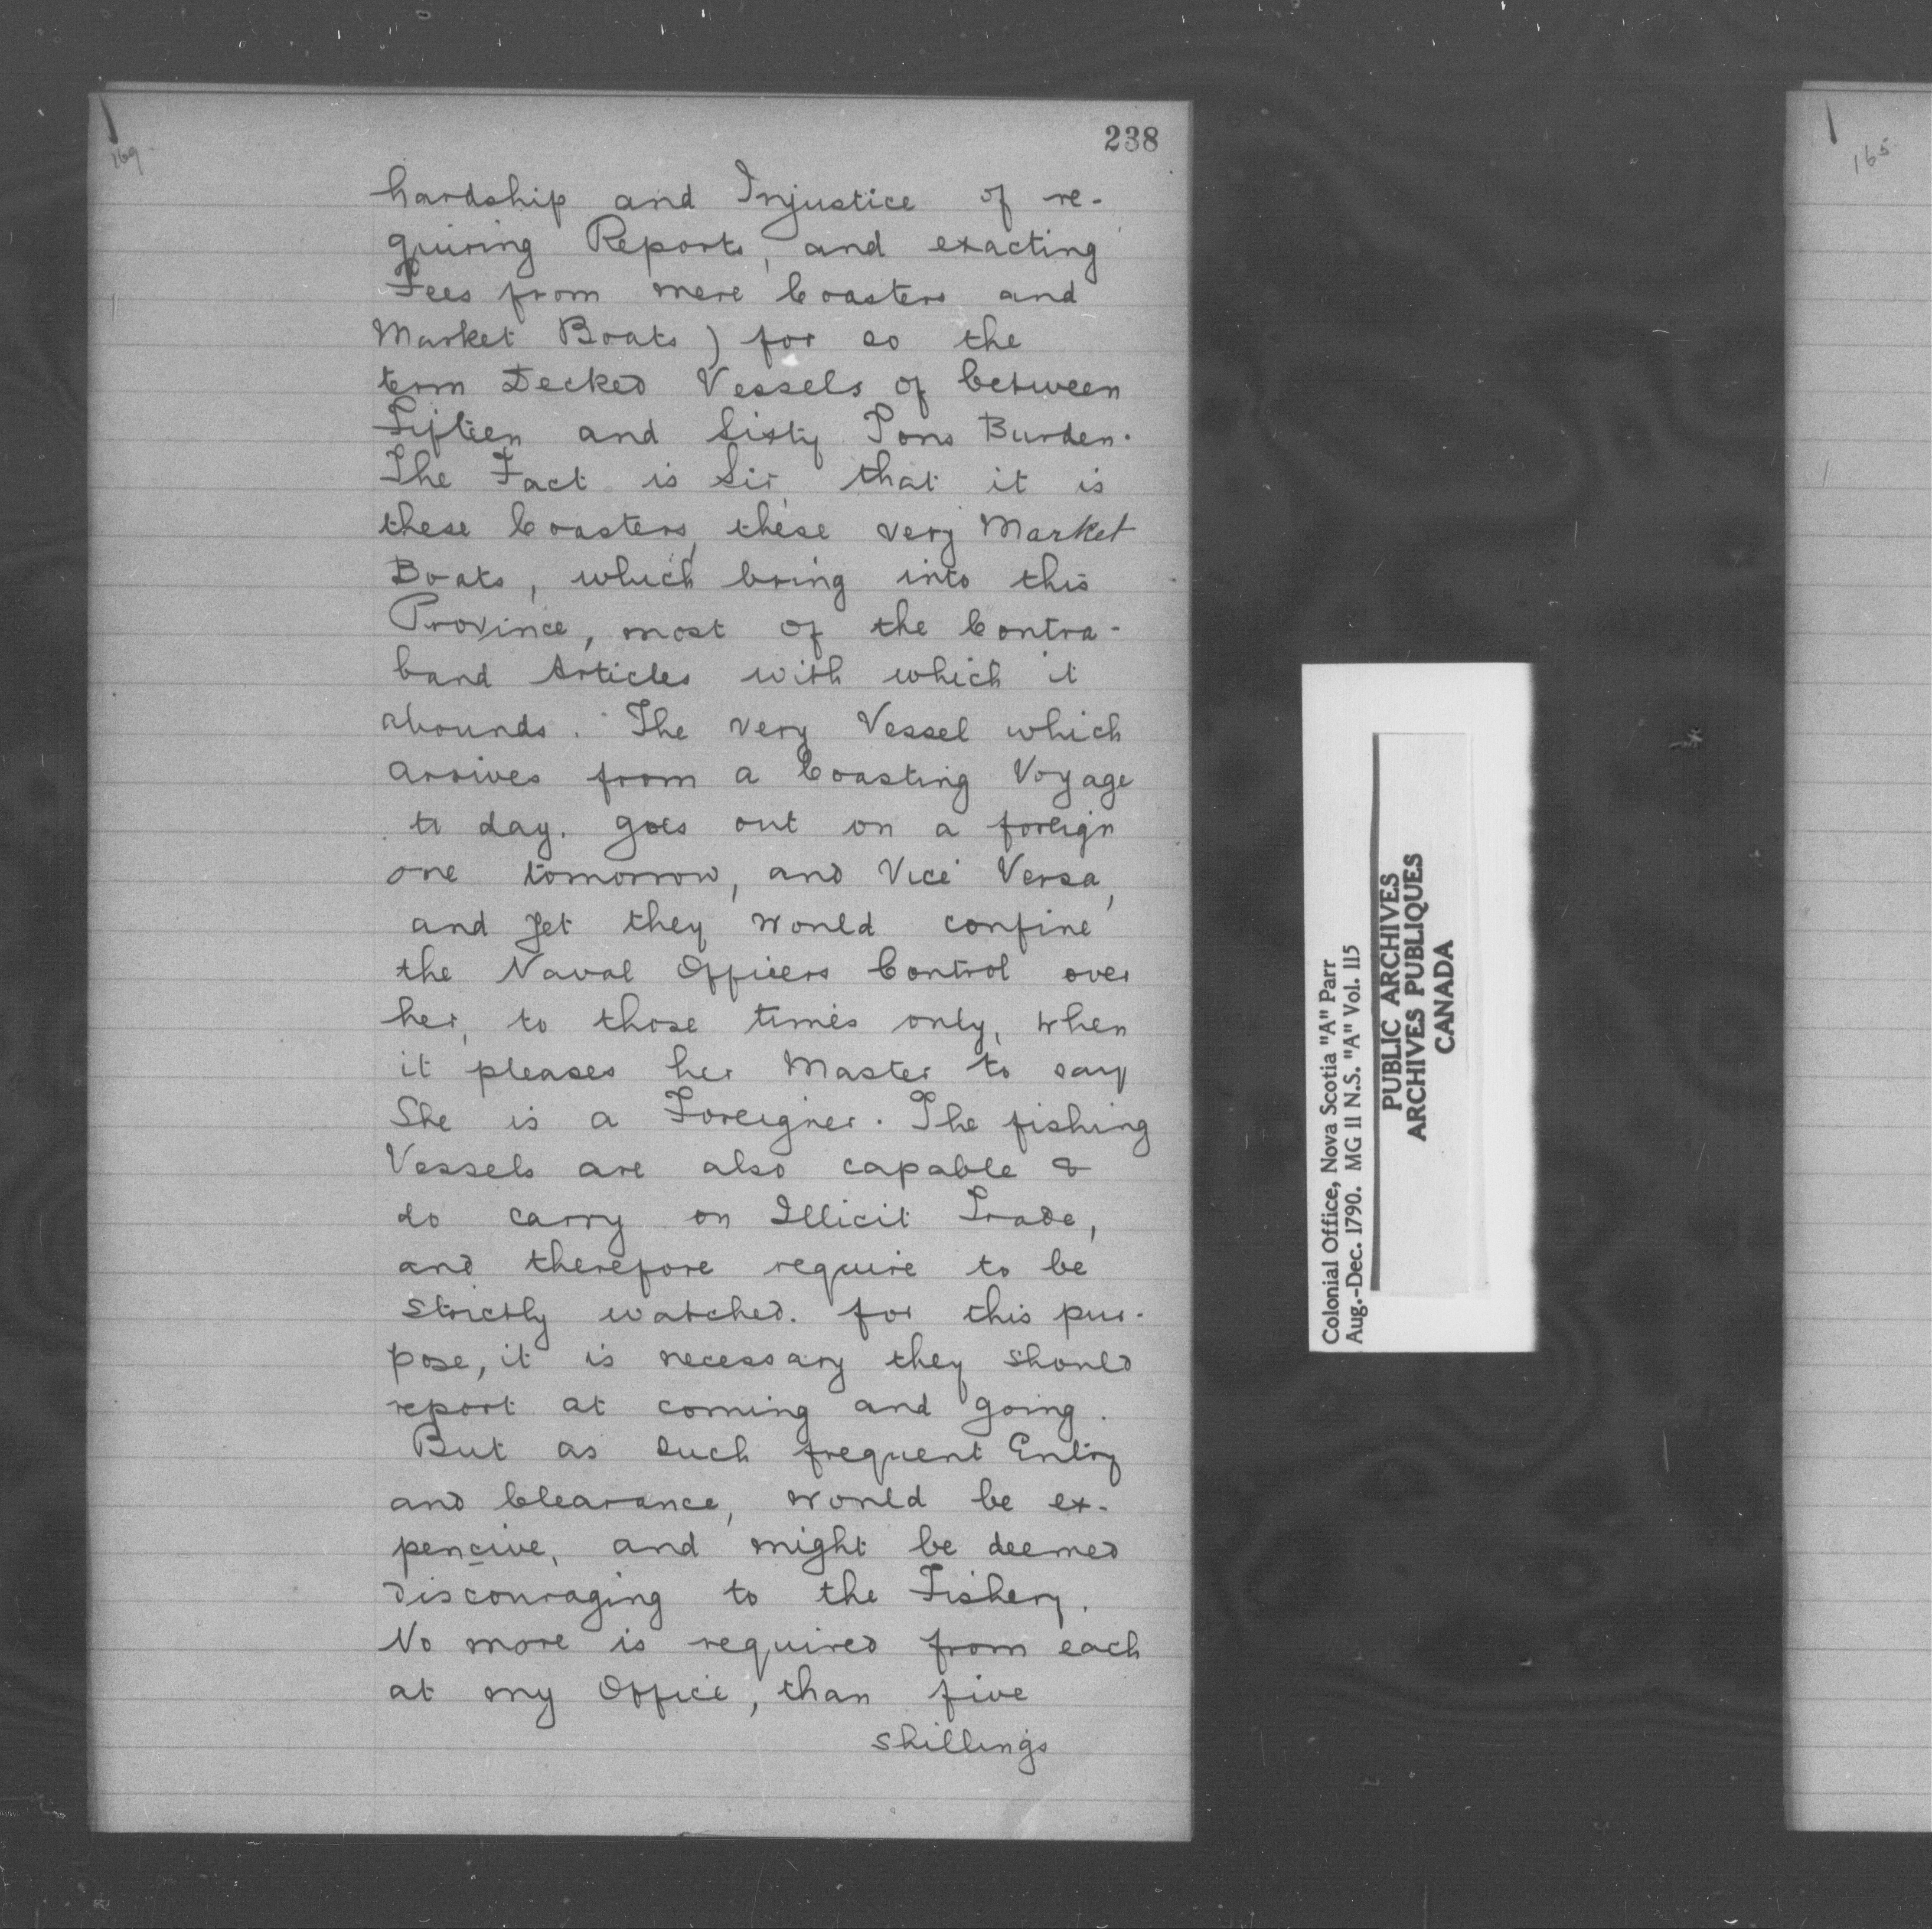 238
169
hardship and Injustice of re-
quiring Reports, and exacting
Fees from mere Coasters and
Market Boats) for so the
term Decked Vessels of between
Fifteen and Sixty Tons Burden.
The Fact is Sir, that it is
these Coasters, these very Market
Boats, which bring into this
Province, most of the Contra-
band Articles with which it
abounds. The very Vessel which
arrives from a Coasting Voyage
to day. goes out on a foreign
one tomorrow, and Vice Versa,
and yet they would confine
the Naval Officers Control over
her, to those times only, when
it pleases her Master to say
She is a Foreigner. The fishing
Vessels are also capable &
do carry on Illicit Trade,
and therefore require to be
strictly watched. for this pur-
pose, it is necessary they should
report at coming and going.
But as such frequent Entry
and Clearance, would be ex-
pencive, and might be deemed
discouraging to the Fishery.
No more is required from each
at my Office, than five
shillings
Colonial Office, Nova Scotia "A" Parr
Aug.-Dec. 1790. MG 11 N.S. "A" Vol. 115
PUBLIC ARCHIVES
ARCHIVES PUBLIQUES
CANADA
165